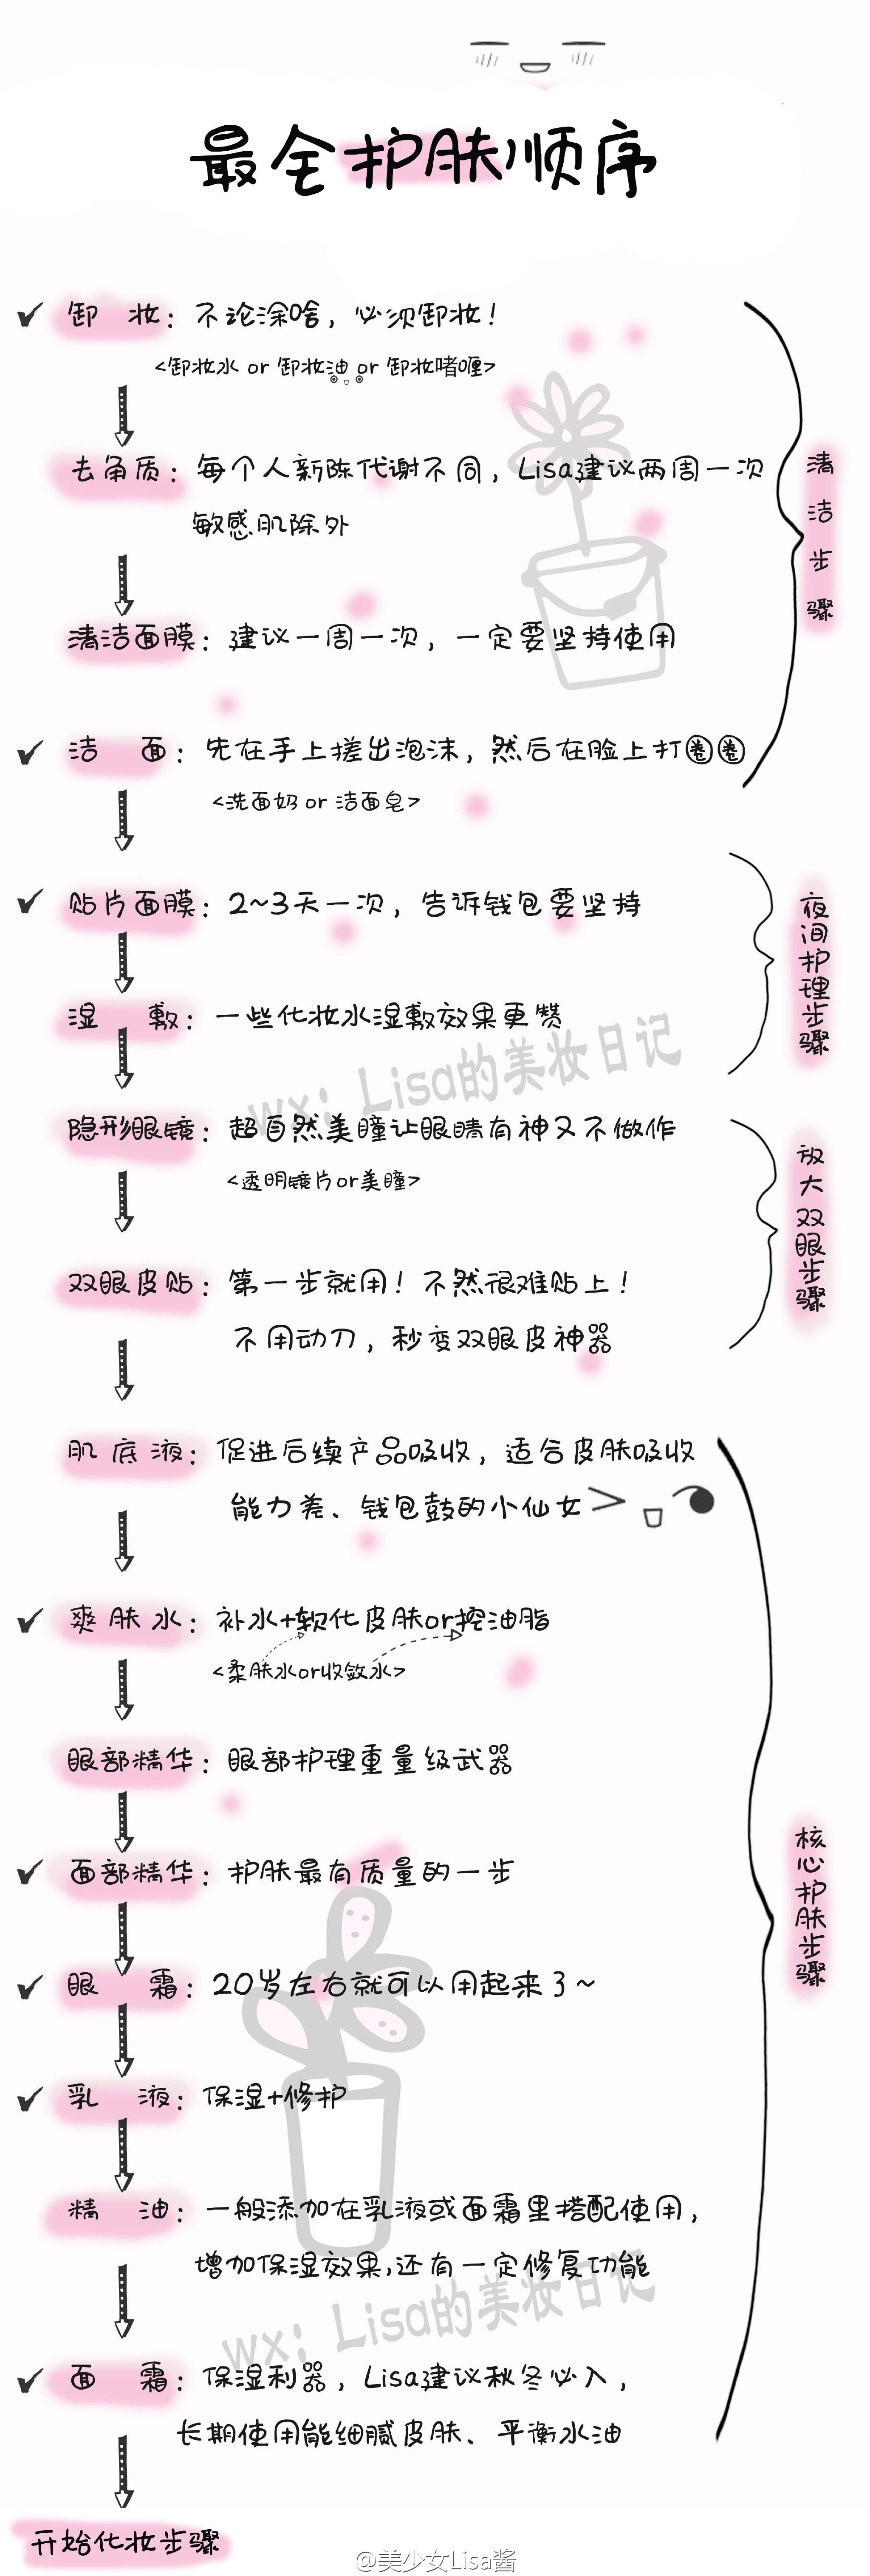 最全护肤顺序
✓ 卸 妆：不论涂啥，必须卸妆！
<卸妆水 or 卸妆油 or 卸妆啫喱>
去角质：每个人新陈代谢不同，Lisa建议两周一次
敏感肌除外
清洁面膜：建议一周一次，一定要坚持使用
✓ 洁 面：先在手上搓出泡沫，然后在脸上打圈圈
<洗面奶 or 洁面皂>
清洁步骤
✓ 贴片面膜：2~3天一次，告诉钱包要坚持
湿 敷：一些化妆水湿敷效果更赞
夜间护理步骤
wx：Lisa的美妆日记
隐形眼镜：超自然美瞳让眼睛有神又不做作
<透明镜片or美瞳>
双眼皮贴：第一步就用！不然很难贴上！
不用动刀，秒变双眼皮神器
放大双眼步骤
肌底液：促进后续产品吸收，适合皮肤吸收
能力差、钱包鼓的小仙女
✓ 爽肤水：补水+软化皮肤or控油脂
<柔肤水or收敛水>
眼部精华：眼部护理重量级武器
✓ 面部精华：护肤最有质量的一步
✓ 眼 霜：20岁左右就可以用起来了~
✓ 乳 液：保湿+修护
精 油：一般添加在乳液或面霜里搭配使用，
增加保湿效果，还有一定修复功能
wx：Lisa的美妆日记
✓ 面 霜：保湿利器，Lisa建议秋冬必入，
长期使用能细腻皮肤、平衡水油
核心护肤步骤
开始化妆步骤
@美少女Lisa酱